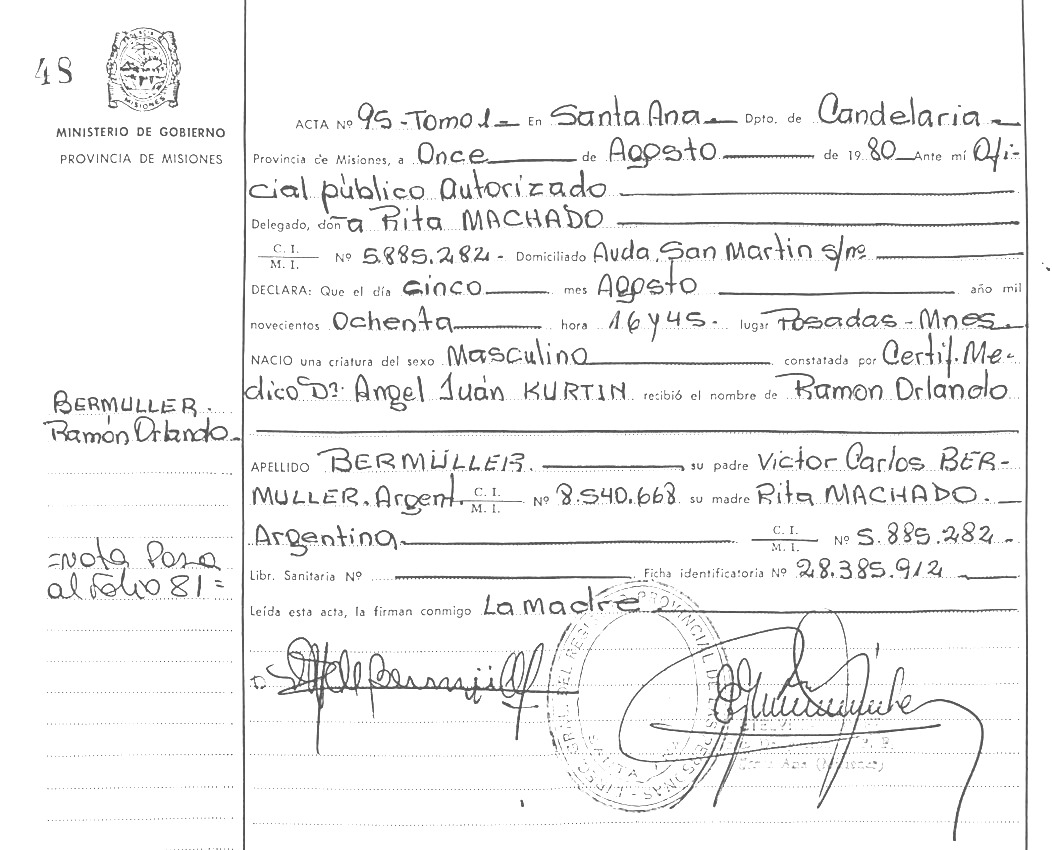 48
MISIONES
MINISTERIO DE GOBIERNO
PROVINCIA DE MISIONES
ACTA Nº 95-Tomo 1- En Santa Ana Dpto. de Candelaria
Provincia de Misiones, a Once de Agosto de 1980 Ante mí Ofi-
cial público autorizado
Delegado, doña Rita MACHADO
C. I.
M. I.
Nº 5.885.282- Domiciliado Avda. San Martin s/nº
DECLARA: Que el día cinco mes Agosto año mil
novecientos Ochenta hora 16 y 45- lugar Posadas-Mnes.
NACIO una criatura del sexo Masculino constatada por Certif. Me-
dico Dr. Angel Juán KURTIN recibió el nombre de Ramon Orlando
BERMULLER.
Ramón Orlando-
APELLIDO BERMÜLLER. su padre Victor Carlos BER-
MULLER. Argent. C. I.
M. I.
Nº 8.540.668 su madre Rita MACHADO.
Argentina C. I.
M. I.
Nº 5.885.282-
=Nota Pasa
al Folio 81=
Libr. Sanitaria Nº Ficha identificatoria Nº 28.385.912
Leída esta acta, la firman conmigo La madre
PROVINCIAL DE LAS PERSONAS